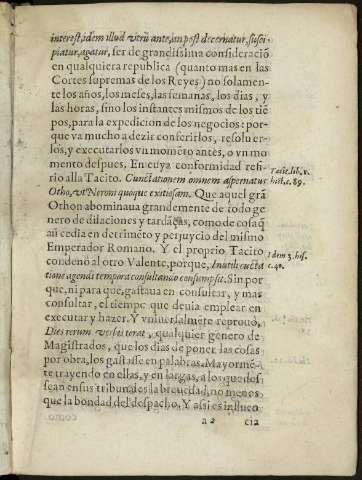 interest, idem illud vtrũ ante, an post decernatur, susci-
piatur, agatur, ser de grandissima consideraciõ
en qualquiera republica (quanto mas en las
Cortes supremas de los Reyes) no solamen-
te los años, los meses, las semanas, los dias, y
las horas, sino los instantes mismos de los tiẽ
pos, para la expedicion de los negocios: por-
que va mucho a dezir conferirlos, resoluer-
los, y executarlos vn momẽto antes, o vn mo
mento despues. En cuya conformidad refi-
rio alla Tacito. Cunctationem omnem aspernatus
Otho, vt Neroni quoque exitiosam. Que aquel grã
Othon abominaua grandemente de todo ge
nero de dilaciones, y tardãças, como de cosa q̃
assi cedia en detrimẽto y perjuycio del mismo
Emperador Romano. Y el proprio Tacito
condenó al otro Valente, porque, Inutili cũcta
tione agendi tempora consultando consumpsit. Sin por
que, ni para que, gastaua en consultar, y mas
consultar, el tiempo que deuia emplear en
executar y hazer. Y vniuersalmente reprouò,
Dies rerum verbis terat, qualquier genero de
Magistrados, que los dias de poner las cosas
por obra, los gastasse en palabras. Mayormẽ-
te trayendo en ellas, y en largas, a los que des-
sean en sus tribunales la breuedad, no menos
que la bondad del despacho. Y assi es influen
a 2 cia
Tacit. lib. 1.
hist. c. 89.
Idem 3. his.
c. 40.